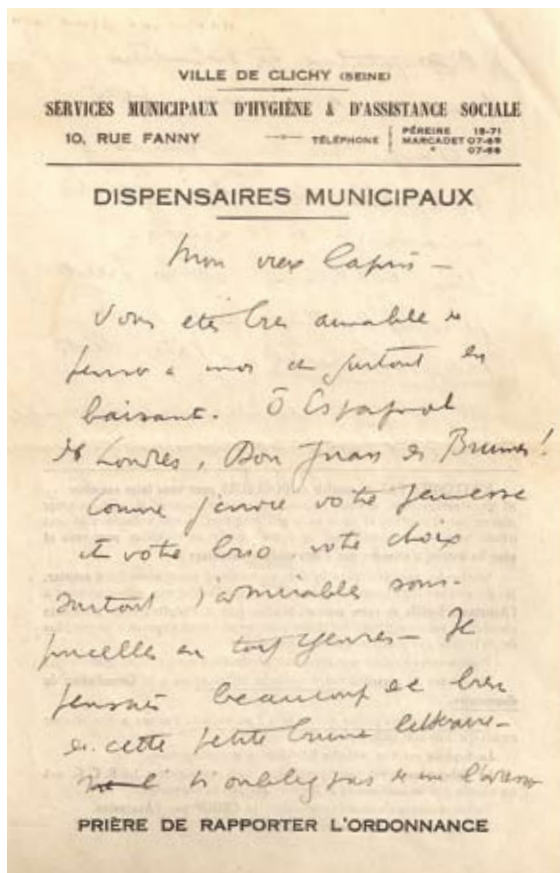 VILLE DE CLICHY (SEINE)
SERVICES MUNICIPAUX D'HYGIÈNE & D'ASSISTANCE SOCIALE
10, RUE FANNY
TÉLÉPHONE
PÉREIRE 18-71
MARCADET 07-69
DISPENSAIRES MUNICIPAUX
Mon vieux lapin –
Vous etes bien aimable de
penser a moi et surtout en
baisant. Ô Espagnol
de Londres, Don Juan des Brumes!
Comme j'envie votre jeunesse
et votre brio votre choix
surtout d'admirables sous-
pucelles en tous genres – Je
pensais beaucoup de bien
de cette petite brune litteraire –
n'oubliez pas de me
PRIÈRE DE RAPPORTER L'ORDONNANCE